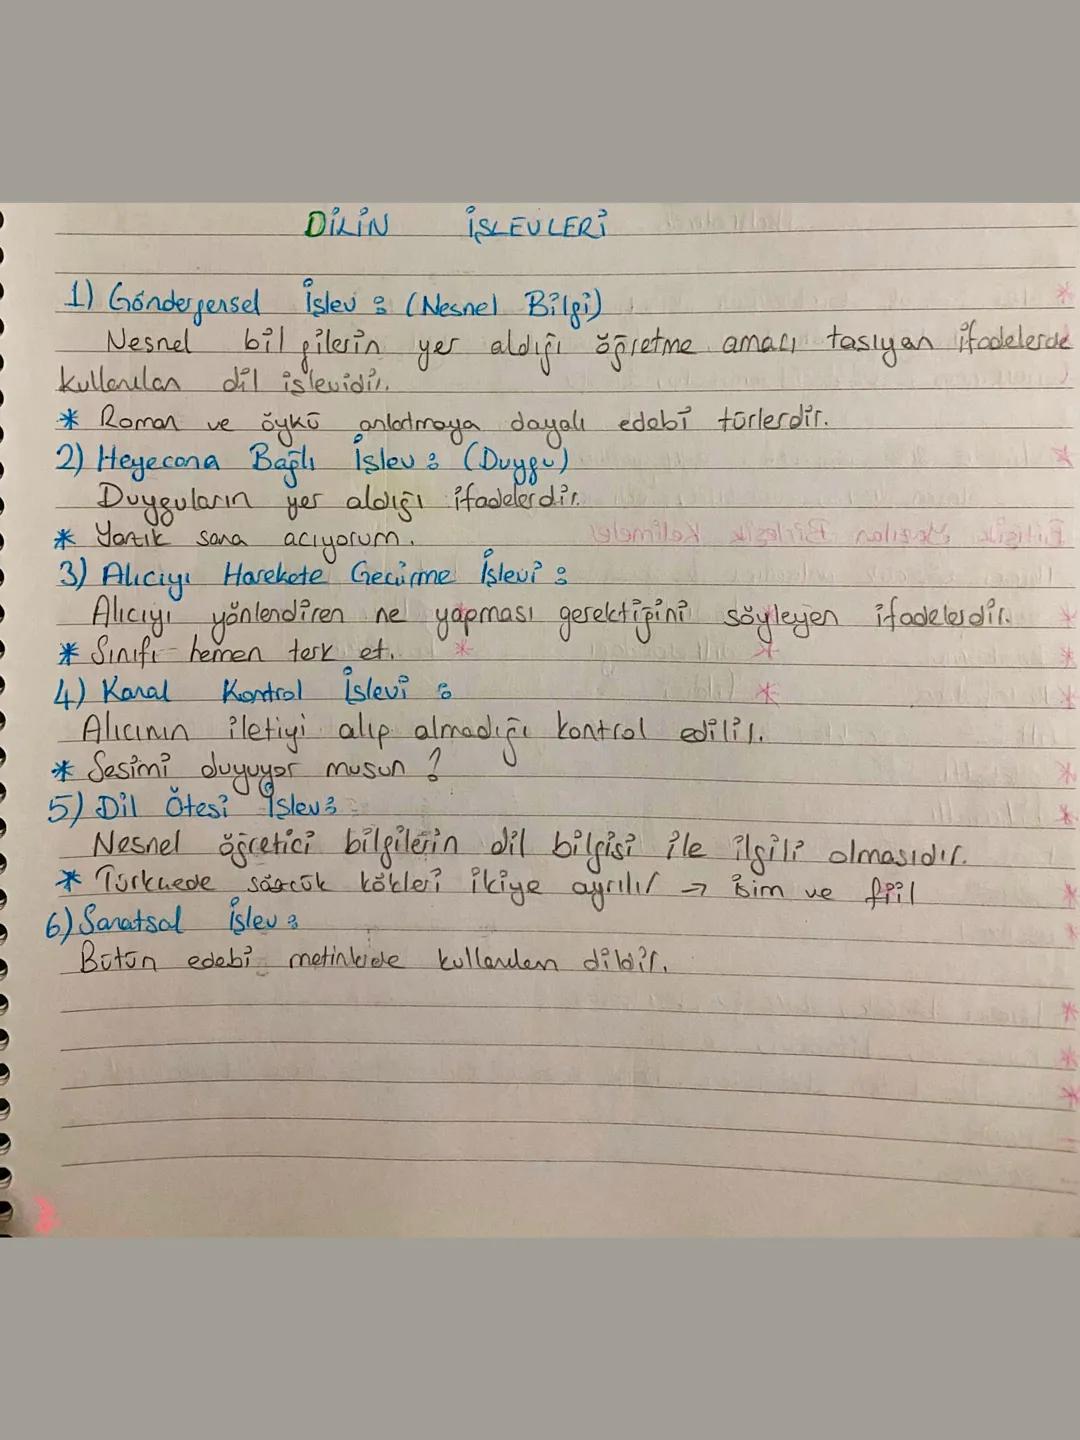 DİLİN İŞLEVLERİ
1) Göndergensel İşlev : (Nesnel Bilgi)
Nesnel bilgilerin yer aldığı öğretme amacı taşıyan ifadelerde
kullanılan dil işlevidir.
* Roman ve öykü anlatmaya dayalı edebi türlerdir.
2) Heyecana Bağlı İşlev : (Duygu)
Duyguların yer aldığı ifadelerdir.
* Yazık sana acıyorum.
3) Alıcıyı Harekete Geçirme İşlevi :
Alıcıyı yönlendiren ne yapması gerektiğini söyleyen ifadelerdir.
* Sınıfı hemen terk et.
4) Kanal Kontrol İşlevi :
Alıcının iletiyi alıp almadığı kontrol edilir.
* Sesimi duyuyor musun ?
5) Dil Ötesi İşlev :
Nesnel öğretici bilgilerin dil bilgisi ile ilgili olmasıdır.
* Türkçede sözcük kökleri ikiye ayrılır → isim ve fiil
6) Sanatsal İşlev :
Bütün edebi metinlerde kullanılan dildir.